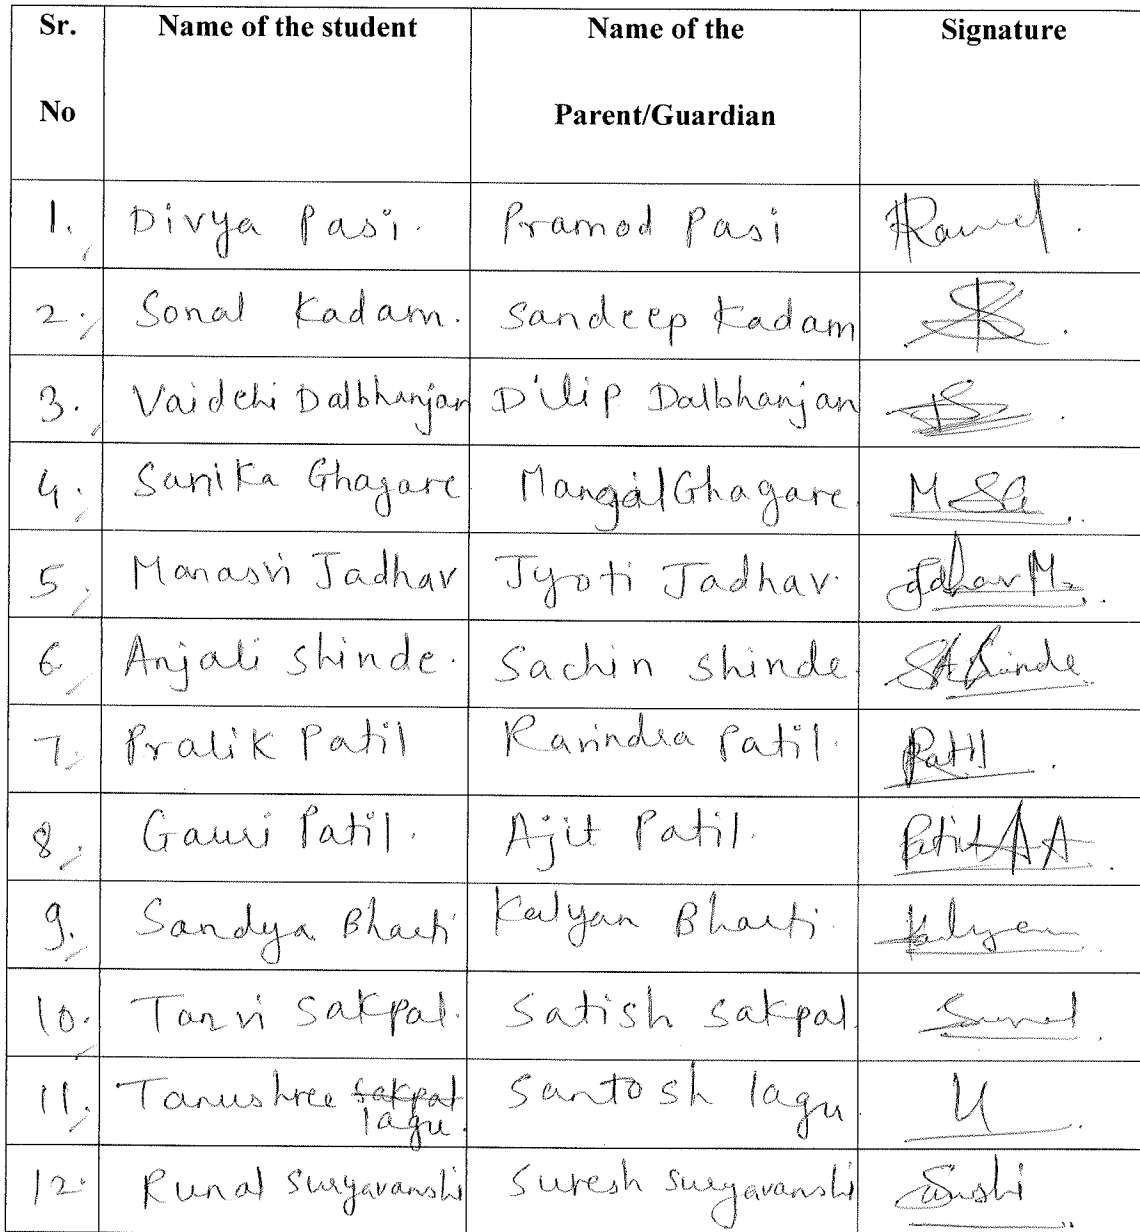 Sr. No | Name of the student | Name of the Parent/Guardian | Signature
1. Divya Pasi. Pramod Pasi
2. Sonal Kadam. Sandeep Kadam
3. Vaidehi Dalbhanjan Dilip Dalbhanjan
4. Sanika Ghagare Mangal Ghagare. MSG
5. Manasvi Jadhav Jyoti Jadhav. Jadhav M.
6. Anjali shinde. Sachin shinde. SAShinde
7. Pratik Patil Ravindra Patil. Patil
8. Gauri Patil. Ajit Patil. Patil AA
9. Sandya Bharti Kalyan Bharti. Kalyan
10. Tanvi Sakpal. Satish Sakpal.
11. Tanushree sakpal Santosh lagu
lagu.
12. Runal Suryavanshi Suresh Suryavanshi